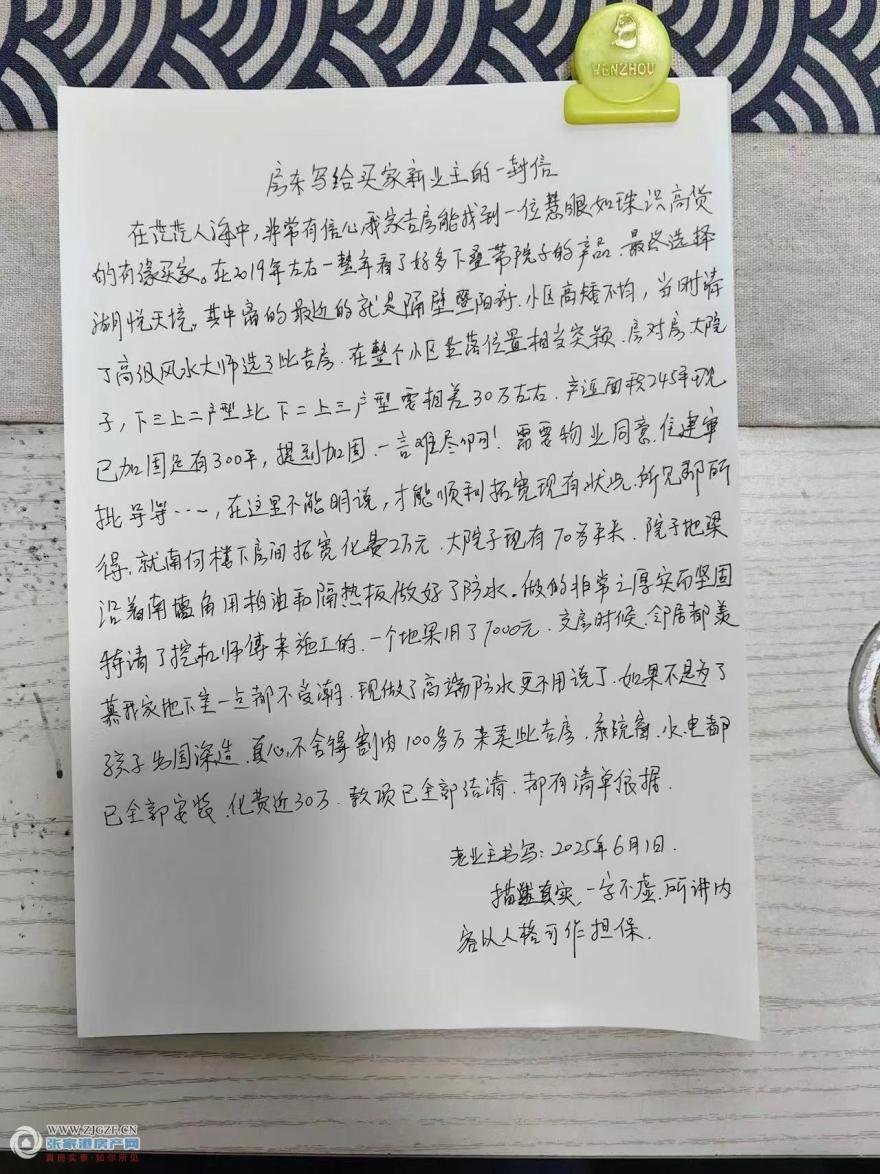 WENZHOU
房东写给买家新业主的一封信
在茫茫人海中，非常有信心我家吉房能找到一位慧眼如珠识高货
的有缘买家。在2019年左右一整年看了好多下叠带院子的产品．最终选择
湖悦天境。其中离的最近的就是隔壁暨阳府．小区高矮不均，当时请
了高级风水大师选了此吉房．在整个小区坐落位置相当突颖．房对房．大院
子，下三上二户型比下二上三户型要相差30万左右．产证面积245平．现
已加固足有300平，提到加固．一言难尽啊！需要物业同意．住建审
批等等……，在这里不能明说，才能顺利拓宽现有状况．所见即所
得．就南向楼下房间拓宽化费2万元．大院子现有70多平米．院子地梁
沿着南墙角用柏油和隔热板做好了防水。做的非常之厚实而坚固
特请了挖机师傅来施工的．一个地梁用了7000元．交房时候．邻居都羡
慕我家地下室一点都不受潮．现做了高端防水更不用说了．如果不是为了
孩子出国深造．真心不舍得割肉100多万来卖此吉房．系统窗．水．电都
已全部安装．化费近30万．款项已全部结清．都有清单依据．
老业主书写：2025年6月1日．
描述真实．一字不虚．所讲内
容以人格可作担保．
WWW.ZJGZF.CN
张家港房产网
真房实景·如你所见